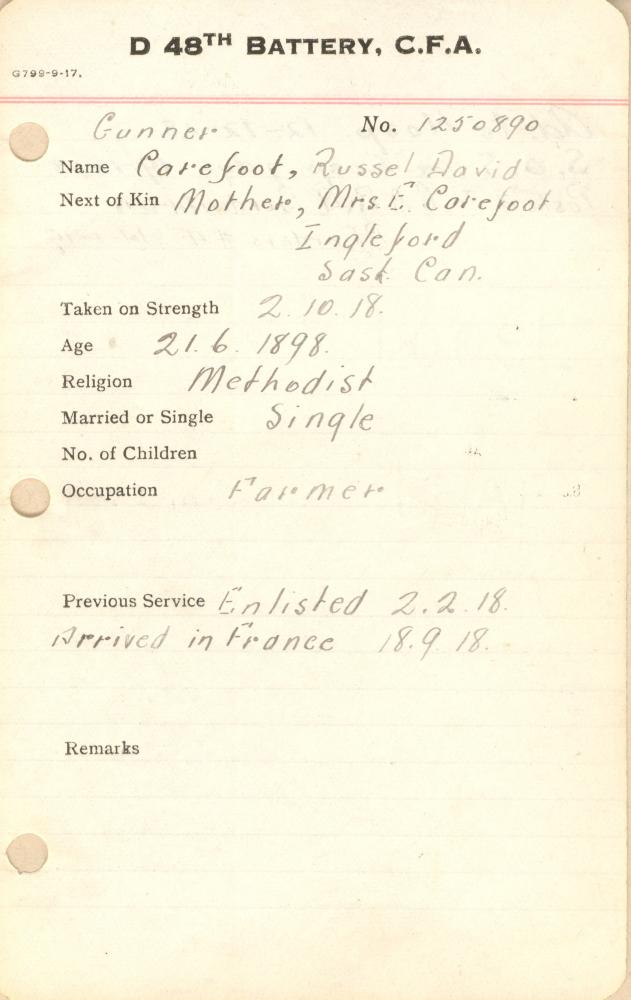 D 48TH BATTERY, C.F.A.
G799-9-17.
Gunner No. 1250890
Name Carefoot, Russel David
Next of Kin Mother, Mrs. E. Carefoot
Ingleford
Sask Can.
Taken on Strength 2.10.18.
Age 21.6.1898.
Religion Methodist
Married or Single Single
No. of Children
Occupation Farmer
Previous Service Enlisted 2.2.18.
Arrived in France 18.9.18.
Remarks